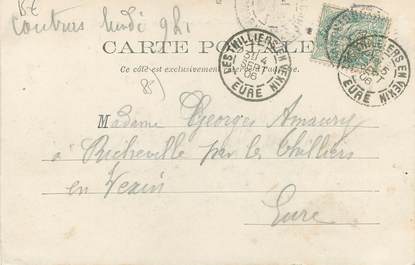 Coutras lundi 9h
CARTE POSTALE
Ce côté est exclusivement à l'adresse.
LES THILLIERS-EN-VEXIN
4
SEPT
06
EURE
LES THILLIERS-EN-VEXIN
EURE
Madame Georges Amaury
à Richeville par les Thilliers
en Vexin
Eure